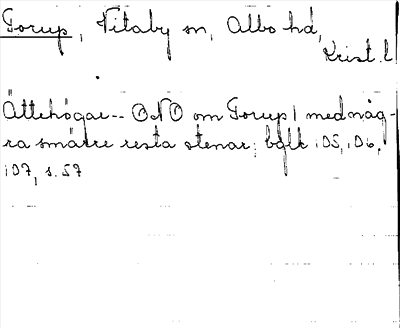 Torup, Vitaby sn, Albo hd,
Krist. l
Ättehögar -- ONO om Torup / med någ-
ra smärre resta stenar; bglk 105, 106,
107, s. 57